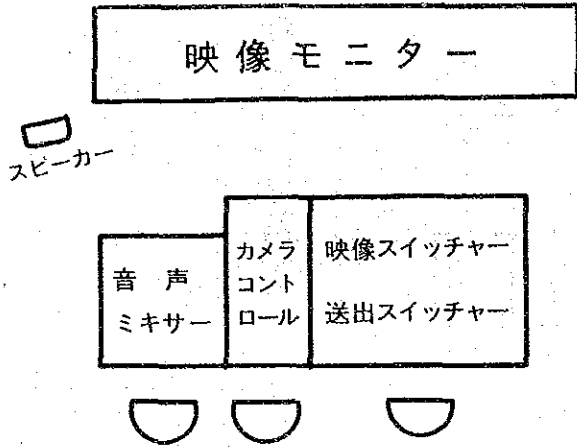 映像モニター
スピーカー
音声
ミキサー
カメラ
コント
ロール
映像スイッチャー
送出スイッチャー